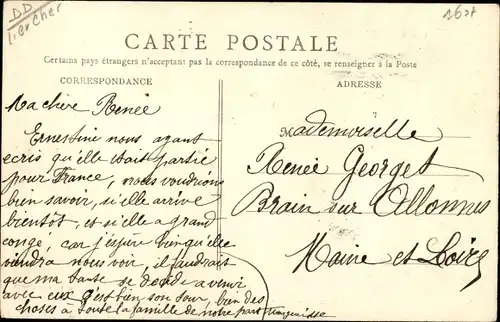 DD
CARTE POSTALE
Certains pays étrangers n'acceptant pas la correspondance de ce côté, se renseigner à la Poste
CORRESPONDANCE
Ma chère Renée
Ernestine nous ayant
ecris qu'elle était partie
pour France, nous voudrions
bien savoir, si elle arrive
bientôt, et si elle a grand
congé, car j'espère bien qu'elle
viendra nous voir, il faudrait
que ma tante se decide a venir
avec eux c'est bien son tour, bien des
choses à toute la famille de notre part
ADRESSE
Mademoiselle
Renée Georget
Brain sur Allonnes
Maine et Loire